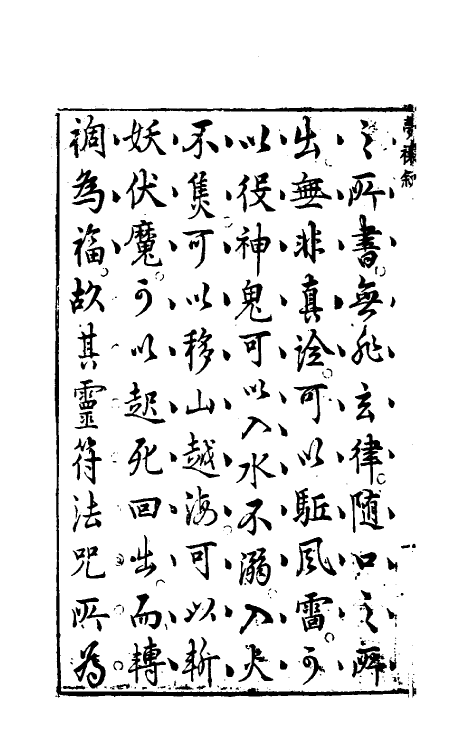 夢禳敘
之所書無非玄律隨口之所
出無非真詮可以駈風雷可
以役神鬼可以入水不溺入火
不𤋱可以移山越海可以斬
妖伏魔可以起死回出而轉
禍為福故其靈符法咒所為